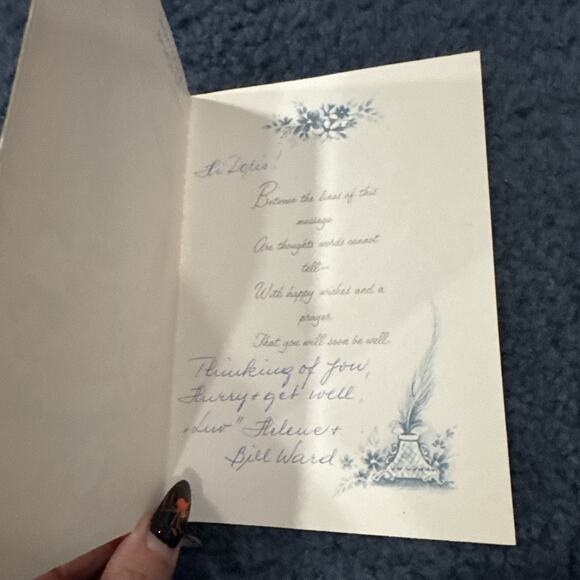 Hi Doris!
Between the lines of this
message
Are thoughts words cannot
tell—
With happy wishes and a
prayer
That you will soon be well.
Thinking of you,
Hurry + get well,
"Luv" Helene +
Bill Ward